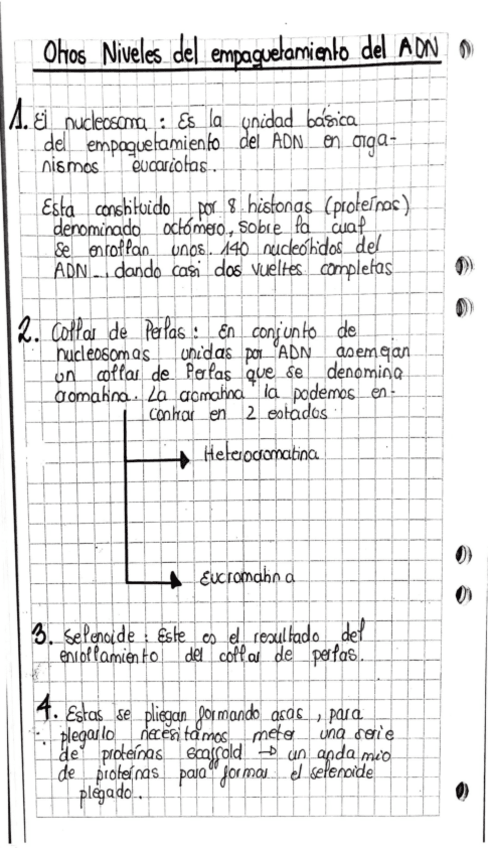 Otros Niveles del empaquetamiento del ADN
1. El nucleosoma : Es la unidad básica
del empaquetamiento del ADN en orga-
nismos eucariotas.
Esta constituido por 8 histonas (proteínas)
denominado octómero, sobre la cual
se enrollan unos. 140 nucleótidos del
ADN _, dando casi dos vueltes completas
2. Collar de Perlas : En conjunto de
nucleosomas unidas por ADN asemejan
un collar de Perlas que se denomina
cromatina. La cromatina la podemos en-
contrar en 2 estados
→ Heterocromatina
→ Eucromatina
3. Selenoide : Este es el resultado del
enrollamiento del collar de perlas.
4. Estas se pliegan formando asas, para
plegarlo necesitamos meter una serie
de proteínas scaffald → un andamio
de proteínas para formar el selenoide
plegado.